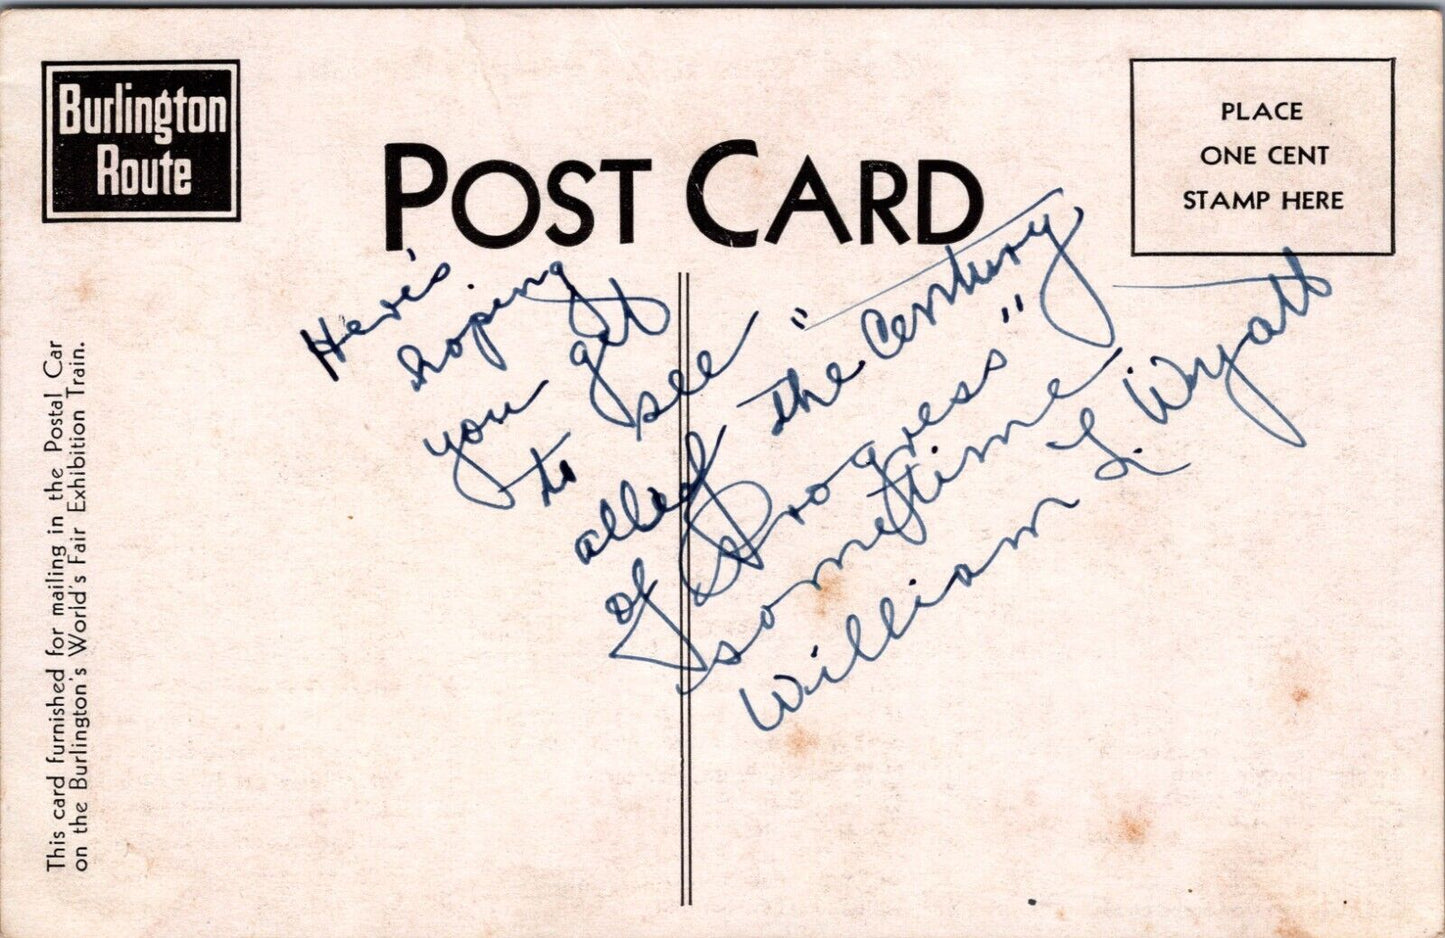 Burlington
Route
POST CARD
PLACE
ONE CENT
STAMP HERE
This card furnished for mailing in the Postal Car
on the Burlington's World's Fair Exhibition Train.
Here's
hoping
you get
to see
all of "the Century
of Progress"
sometime
William L. Wyatt